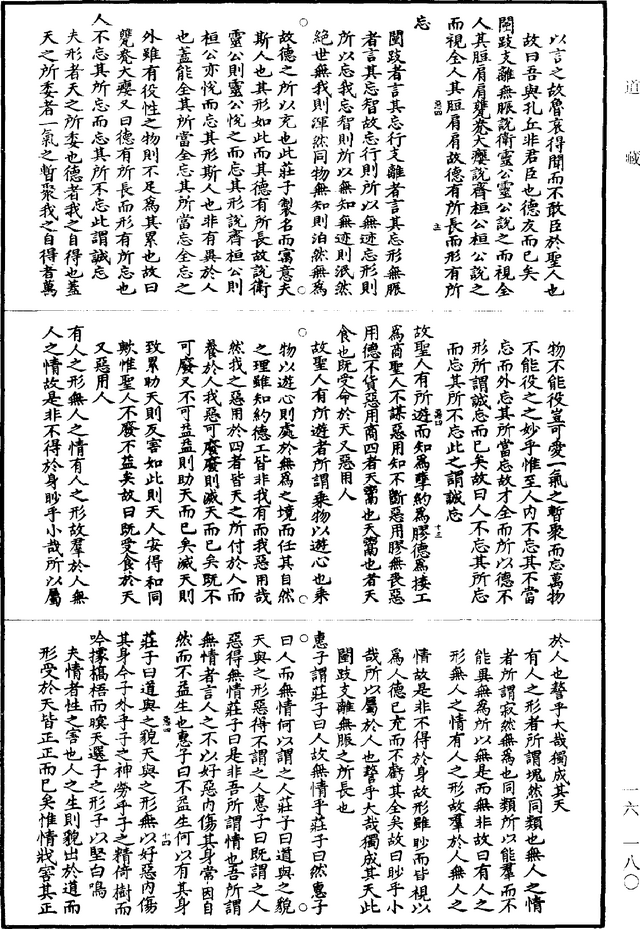 道藏
以言之故魯哀得聞而不敢臣於聖人也
故曰吾與孔丘非君臣也德友而已矣
闉跂支離無脤說衛靈公靈公說之而視全
人其脰肩肩甕㼜大癭說齊桓公桓公說之
而視全人其脰肩肩故德有所長而形有所
忘
闉跂者言其忘行支離者言其忘形無脤
者言其忘智故忘行則所以無迹忘形則
所以忘我忘智則所以無知無迹則泯然
絕世無我則渾然同物無知則泊然無為
故德之所以充也此莊子製名而寓意夫
斯人也其形如此而其德有所長故說衛
靈公則靈公悅之而忘其形說齊桓公則
桓公亦悅而忘其形斯人也非有異於人
也蓋能全其所當全忘其所當忘全忘之
外雖有役性之物則不足為其累也故曰
甕㼜大癭又曰德有所長而形有所忘也
人不忘其所忘而忘其所不忘此謂誠忘
夫形者天之所委也德者我之自得也蓋
天之所委者一氣之暫聚我之自得者萬
物不能役豈可愛一氣之暫聚而忘萬物
不能役之之妙乎惟至人內不忘其不當
忘而外忘其所當忘故才全而所以德不
形所謂誠忘而已矣故曰人不忘其所忘
而忘其所不忘此之謂誠忘
故聖人有所遊而知為孽約為膠德為接工
為商聖人不謀惡用知不斷惡用膠無喪惡
用德不貨惡用商四者天鬻也天鬻也者天
食也既受命於天又惡用人
故聖人有所遊者所謂乘物以遊心也乘
物以遊心則處於無為之境而任其自然
之理雖知約德工皆非我有而我惡用哉
然我之惡用於四者皆天之所付於人而
養於人我惡可廢廢則滅天而已矣既不
可廢又不可益益則助天而已矣滅天則
致累助天則反害如此則天人安得和同
歟惟聖人不廢不益矣故曰既受食於天
又惡用人
有人之形無人之情有人之形故羣於人無
人之情故是非不得於身眇乎小哉所以屬
於人也謷乎大哉獨成其天
有人之形者所謂塊然同類也無人之情
者所謂寂然無為也同類所以能羣而不
能異無為所以無是而無非故曰有人之
形無人之情有人之形故羣於人無人之
情故是非不得於身故形雖眇而皆視以
為人德已充而不虧其全矣故曰眇乎小
哉所以屬於人也謷乎大哉獨成其天此
闉跂支離無脤之所長也
惠子謂莊子曰人故無情乎莊子曰然惠子
曰人而無情何以謂之人莊子曰道與之貌
天與之形惡得不謂之人惠子曰既謂之人
惡得無情莊子曰是非吾所謂情也吾所謂
無情者言人之不以好惡內傷其身常因自
然而不益生也惠子曰不益生何以有其身
莊子曰道與之貌天與之形無以好惡內傷
其身今子外乎子之神勞乎子之精倚樹而
吟據槁梧而瞑天選子之形子以堅白鳴
夫情者性之害也人之生則貌出於道而
形受於天皆正正而已矣惟情戕害其正
一六—一八〇